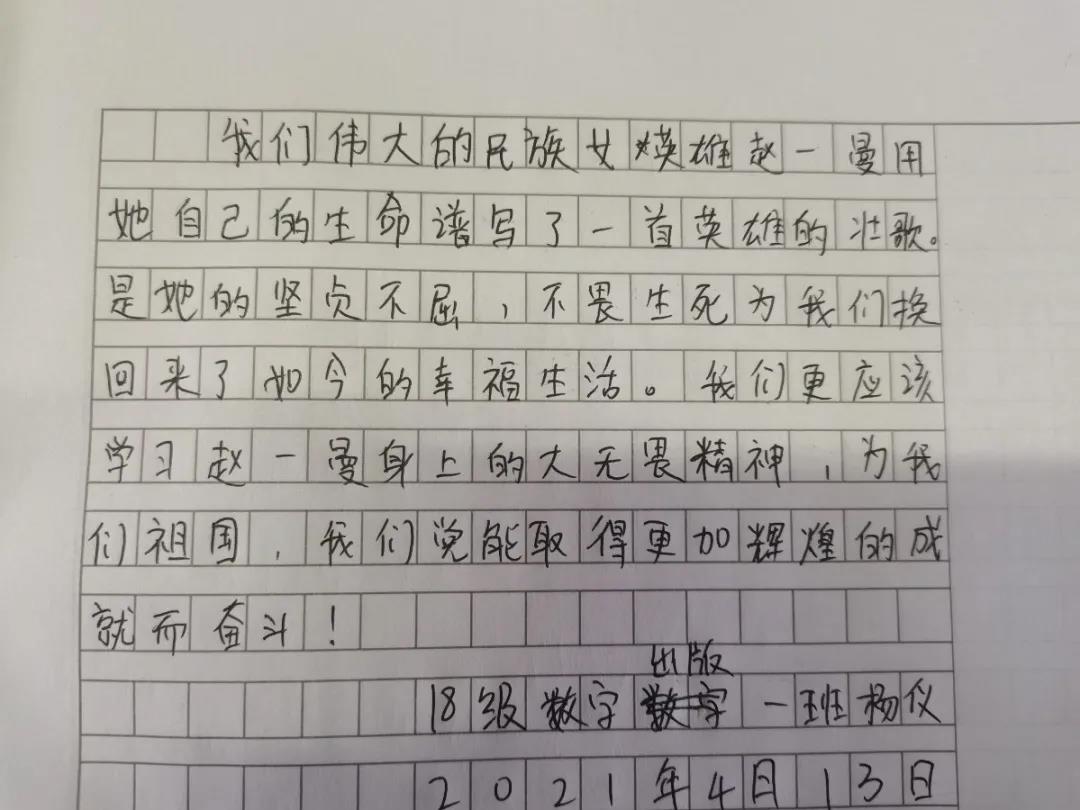 我们伟大的民族女英雄赵一曼用
她自己的生命谱写了一首英雄的壮歌。
是她的坚贞不屈，不畏生死为我们换
回来了如今的幸福生活。我们更应该
学习赵一曼身上的大无畏精神，为我
们祖国，我们党能取得更加辉煌的成
就而奋斗！
18级数字出版一班杨仪
2021年4月13日